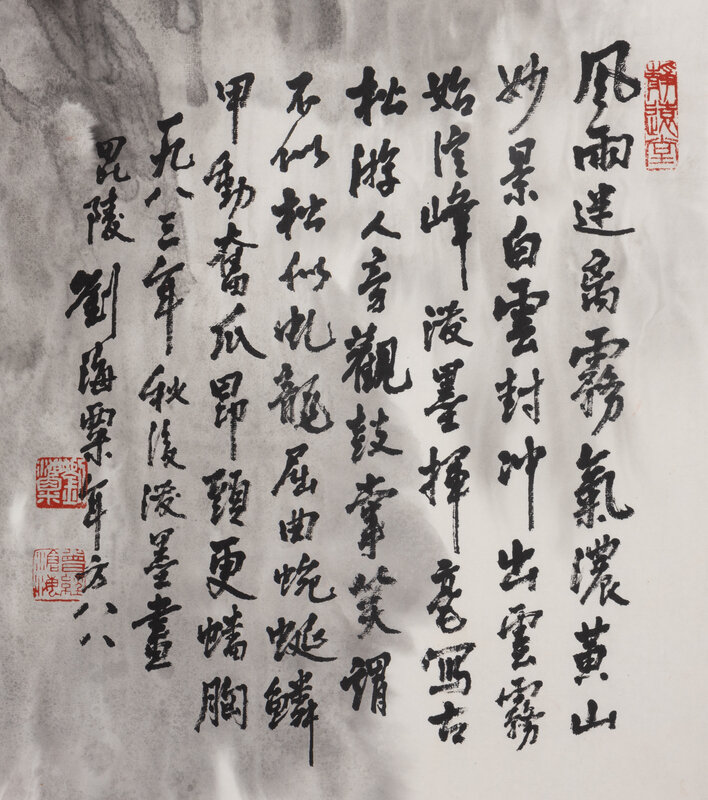 風雨迷离霧氣濃黃山
妙景白雲封冲出雲霧
始信峰潑墨揮毫寫古
松游人旁觀鼓掌笑謂
不似松似虬龍屈曲蜿蜒鱗
甲動奮爪昂頭更蟠胸
一九八三年秋後潑墨畫
毘陵劉海粟年方八八
靜遠堂
劉海粟
曾經滄海